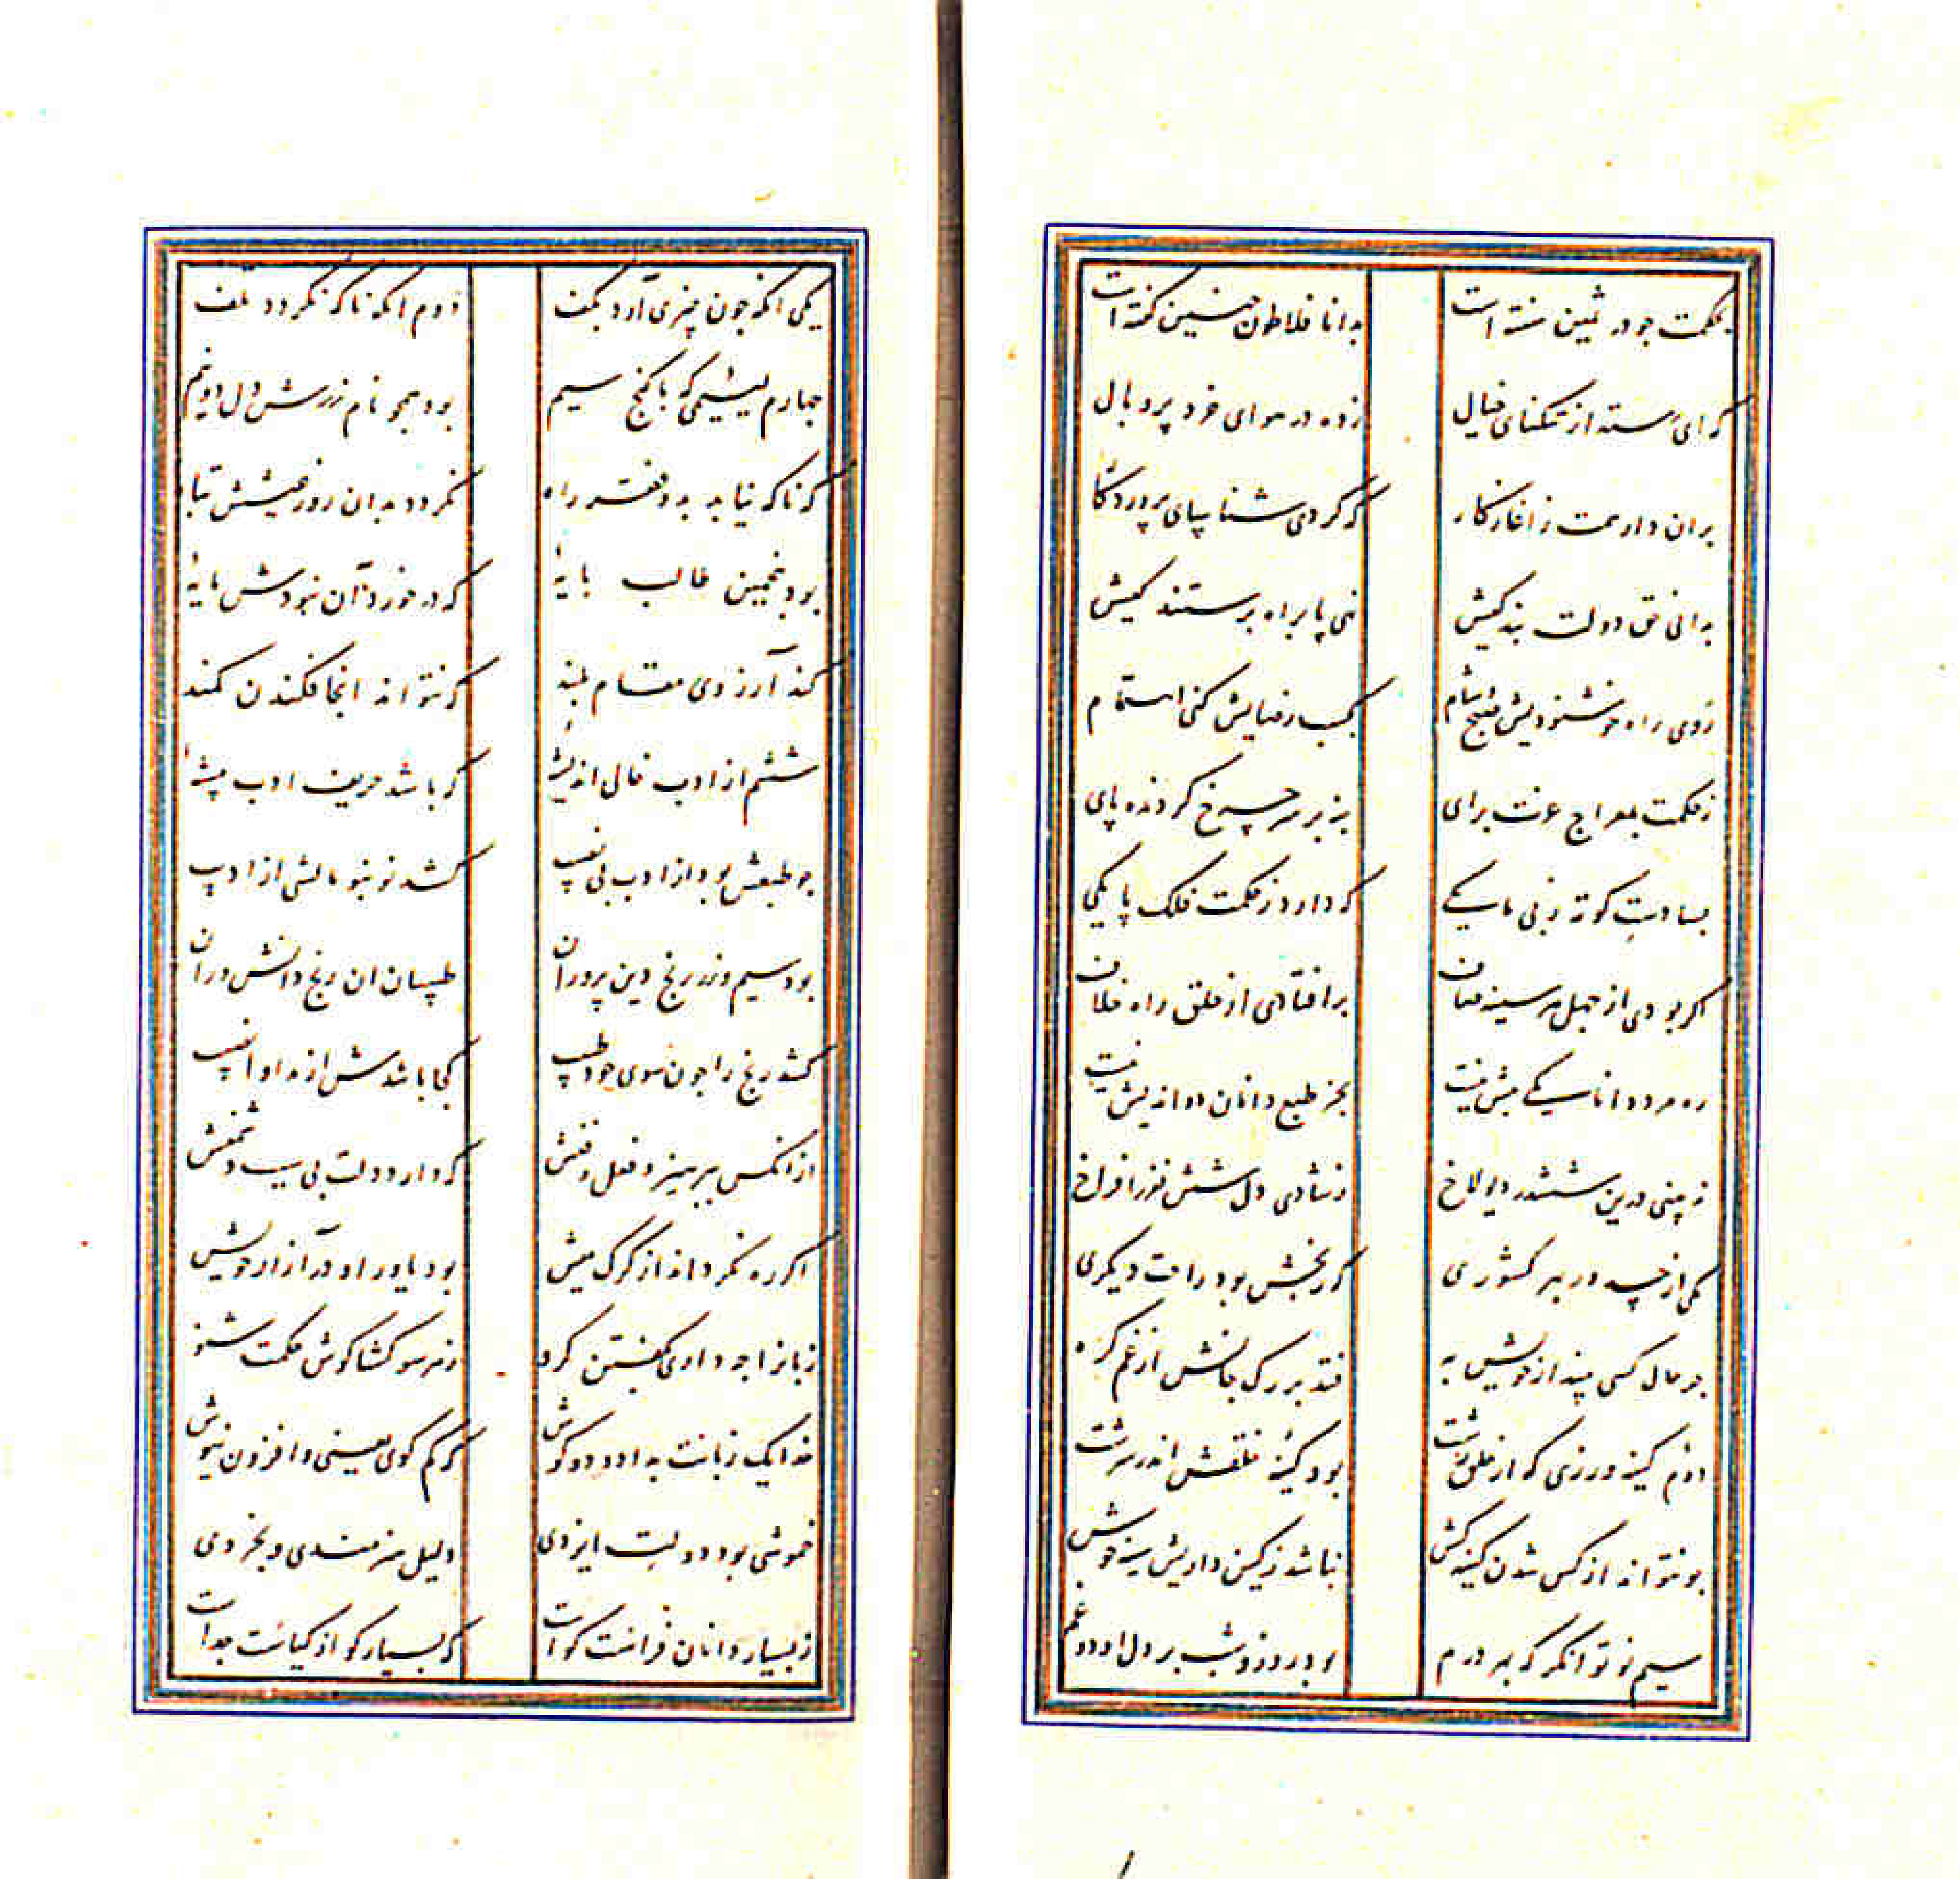 بحکمت جو در ثمین سفته است بدانا فلاطون چنین گفته است
که ای رسته از تنکنای خیال زده در هوای خرد پر و بال
بران دار همت ز آغاز کار که کردی شناسای پروردکار
بدانی حق دولت بندکیش نهی پا براه پرستندکیش
روی راه خوشنودیش صبح و شام بکسب رضایش کنی اهتمام
ز حکمت بمعراج عزت برای بنه بر سر چرخ کردنده پای
بسا دست کوته ز بی مایکی که دارد ز حکمت فلک پایکی
اکر بودی از جهل هر سینه صاف برافتادی از خلق راه خلاف
ره مرد دانا یکی بیش نیست بجز طبع نادان دو اندیش نیست
نه بینی درین ششدر دیولاخ ز شادی دل شش نفر را فراخ
یکی از حسد در بهر کشوری که رنجش بود راحت دیکری
چو حال کسی بیند از خویش به فتد بر رک جانش از غم کره
دوم کینه ورزی که از خلق زشت بود کینهٔ خلقش اندر سرشت
چو نتواند از کس شدن کینه کش نباشد ز کین داریش سینه خوش
سیم نو توانکر که بهر درم بود روز و شب بر دل او دو غم
یکی آنکه چون چیزی آرد بکف دوم آنکه ناکه نکردد تلف
چهارم لئیمی که با کنج سیم بود همچو نام زرش دل دو نیم
که ناکه نیابد بدو فقر راه نکردد بدان روز عیشش تباه
بود پنجمین طالب پایهٔ که در خورد آن نبودش مایهٔ
کند آرزوی مقام بلند که نتواند آنجا فکندن کمند
ششم از ادب خالی اندیشهٔ که باشد حریف ادب پیشهٔ
چو طبعش بود از ادب بی نصیب کشد نو بنو مالش از ادیب
بود سیم و زر رنج دین پروران طبیبان آن رنج دانش وران
کشد رنج را چون سوی خود طبیب کجا باشدش از مداوا نصیب
از آنکس بپرهیز و فعل و فنش که دارد دولت بی‌سبب دشمنش
اکر ره نکرداند از کرک میش بود یاور او در آزار خویش
زبانرا چو دادی بکفتن کرو ز هر سو کشا کوش حکمت شنو
خدا یک زبانت بداد و دو کوش که کم کوی یعنی و افزون نیوش
خموشی بود دولت ایزدی دلیل هنرمندی و بخردی
ز بسیار دانان فراست کواست که بسیار کو از کیاست جداست